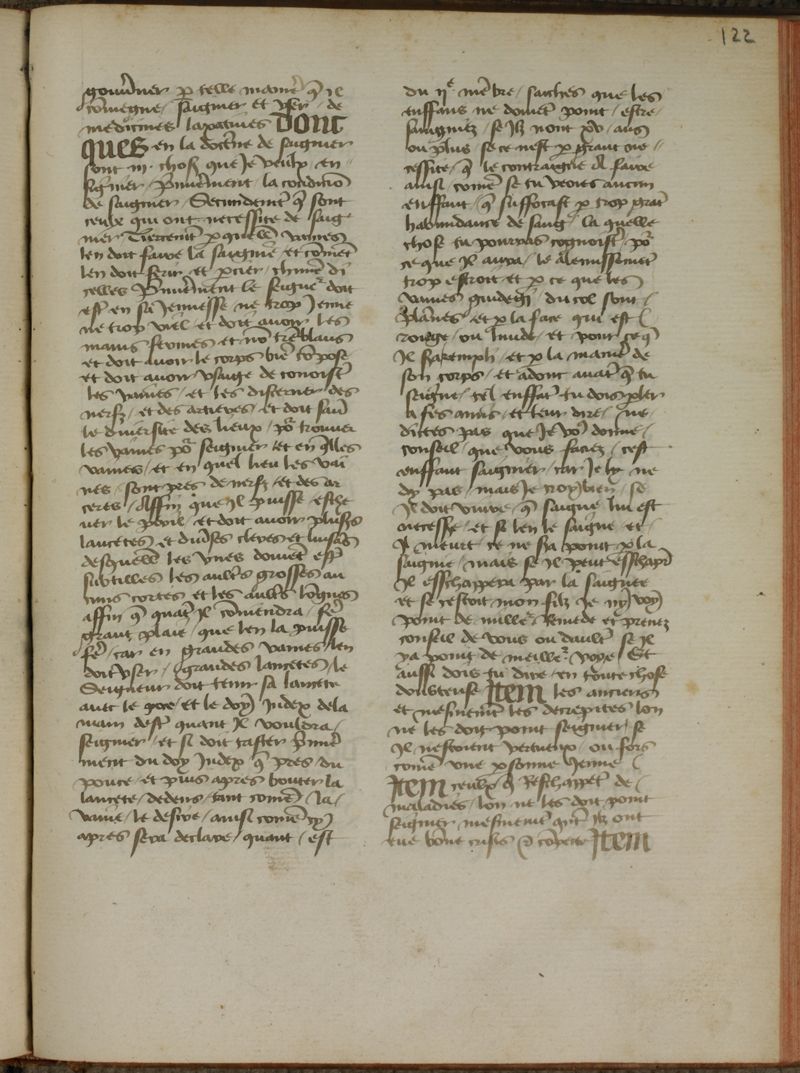 122
gouv̄ner p̄ telle manie᷑ q̄ il
cōuiegne / saignier et vser / de
medicines laxatiues Donc
ques en la doct̄ne de saignier
sont iij choses que Je veulx en /
signier / p̄mieremēt / la condiciō
de saignier / Secundemēt q̄ sont
ceulx qui ont necessite de saig
nier Tiercemēt p̄ quelles vaines
len doit faire la saignie / et cōmēt
len doit ferir et p̄cier / chūne di
celles P̄mieremēt le seigne᷑ doit
est᷑ en sa Jeunesse ne trop Jeune
ne trop viel et doit auoir les
mains fermes et nō trēblans
et doit auoir le corps biē cōpose
et doit auoir vsaige de conoist᷑
les vaines / et les discerner des
nerfz / et des arteres et doit sauoir
le diuersite des lieux / po᷑ trouuer
les vaines po᷑ seignier et en q̄lles
vaines / et en quel lieu les vai
nes / sont pres de nerfz et des ar
teres / Affin que Jl puisse esche
uer le peril / et doit auoir plusrs
lancetes et diuses cleres et luisās
desquelles les vnes doiuēt est᷑
subtilles les ault̄s grosses au
cuns cortes et les ault̄s lōgues
affin q̄ quāt Jl cōuiendra / fe᷑
grant plaie / que len la puisse
fe᷑ / car en grandes vaines len
doit vser / grandes lancetes / le
Seigneur doit tenir sa lancete
auec le poce / et le doy Index dela
main dest᷑ quant Jl vouldra /
seignier / et si doit taster p̄miere
ment du doy Index q̄ pres du
pouce / et puis apres bouter la
lancete / dedens / tant comē la /
vaine / le desire / ainsi comē cy
apres sera declare / quant / est
du ije mēbre / saiches que les
enffans ne doiuēt point / estre /
saigniez / se Jlz nont xv / ans
ou plus / se ce nest p̄ grant ne /
cessite / q̄ le contraigne A faire
ainsi comē se tu veoies aucun
enffant / q̄ suffocast p̄ trop grāt
habundance de sang / la quelle
chose tu pourras cognoist᷑ / po᷑
ce que Jl aura / le
trop estroit et p̄ ce que les
vaines du col sont /
plaines / et p̄ la face qui est /
rouge / ou liuide / et pour ce q̄
Jl / et p̄ la manie᷑ de
son corps / et adonc auāt q̄ tu
seigne / tel enffāt tu dois p̄ler
a ses amis / et leur dire / Ne
dictes pas que Je vo᷑ donne /
conseil / que vous faciez / cest
enffant saignier / car Je ly ne
dy pas / mais Je voy bien / se
Jl doit viure / q̄ saigne lui est
necesse / et si len le saigne et /
Jl meurt ce ne sera point p̄ la
saignie / mais se Jl peut eschap᷑
Jl eschappera par la saignee
et se cestoit mon filz Je ny voy
point de meille᷑ Remede et prenez
conseil de vous ou dault᷑ se Jl
ya point de meille᷑ voye / Et
aussi dois tu dire / en toute chose
doubteuse Item les anciens
et mesmemēt les decrepites lon
ne les doit point seignier / se
Jl nestoient vertueux / ou fors
comē vne p̄sonne Jeune /
Item ceulx q̄ Reschappēt de /
maladies / lon ne les doit point
seignier mesmemēt quāt Jlz ont
eue bōne crisis Item